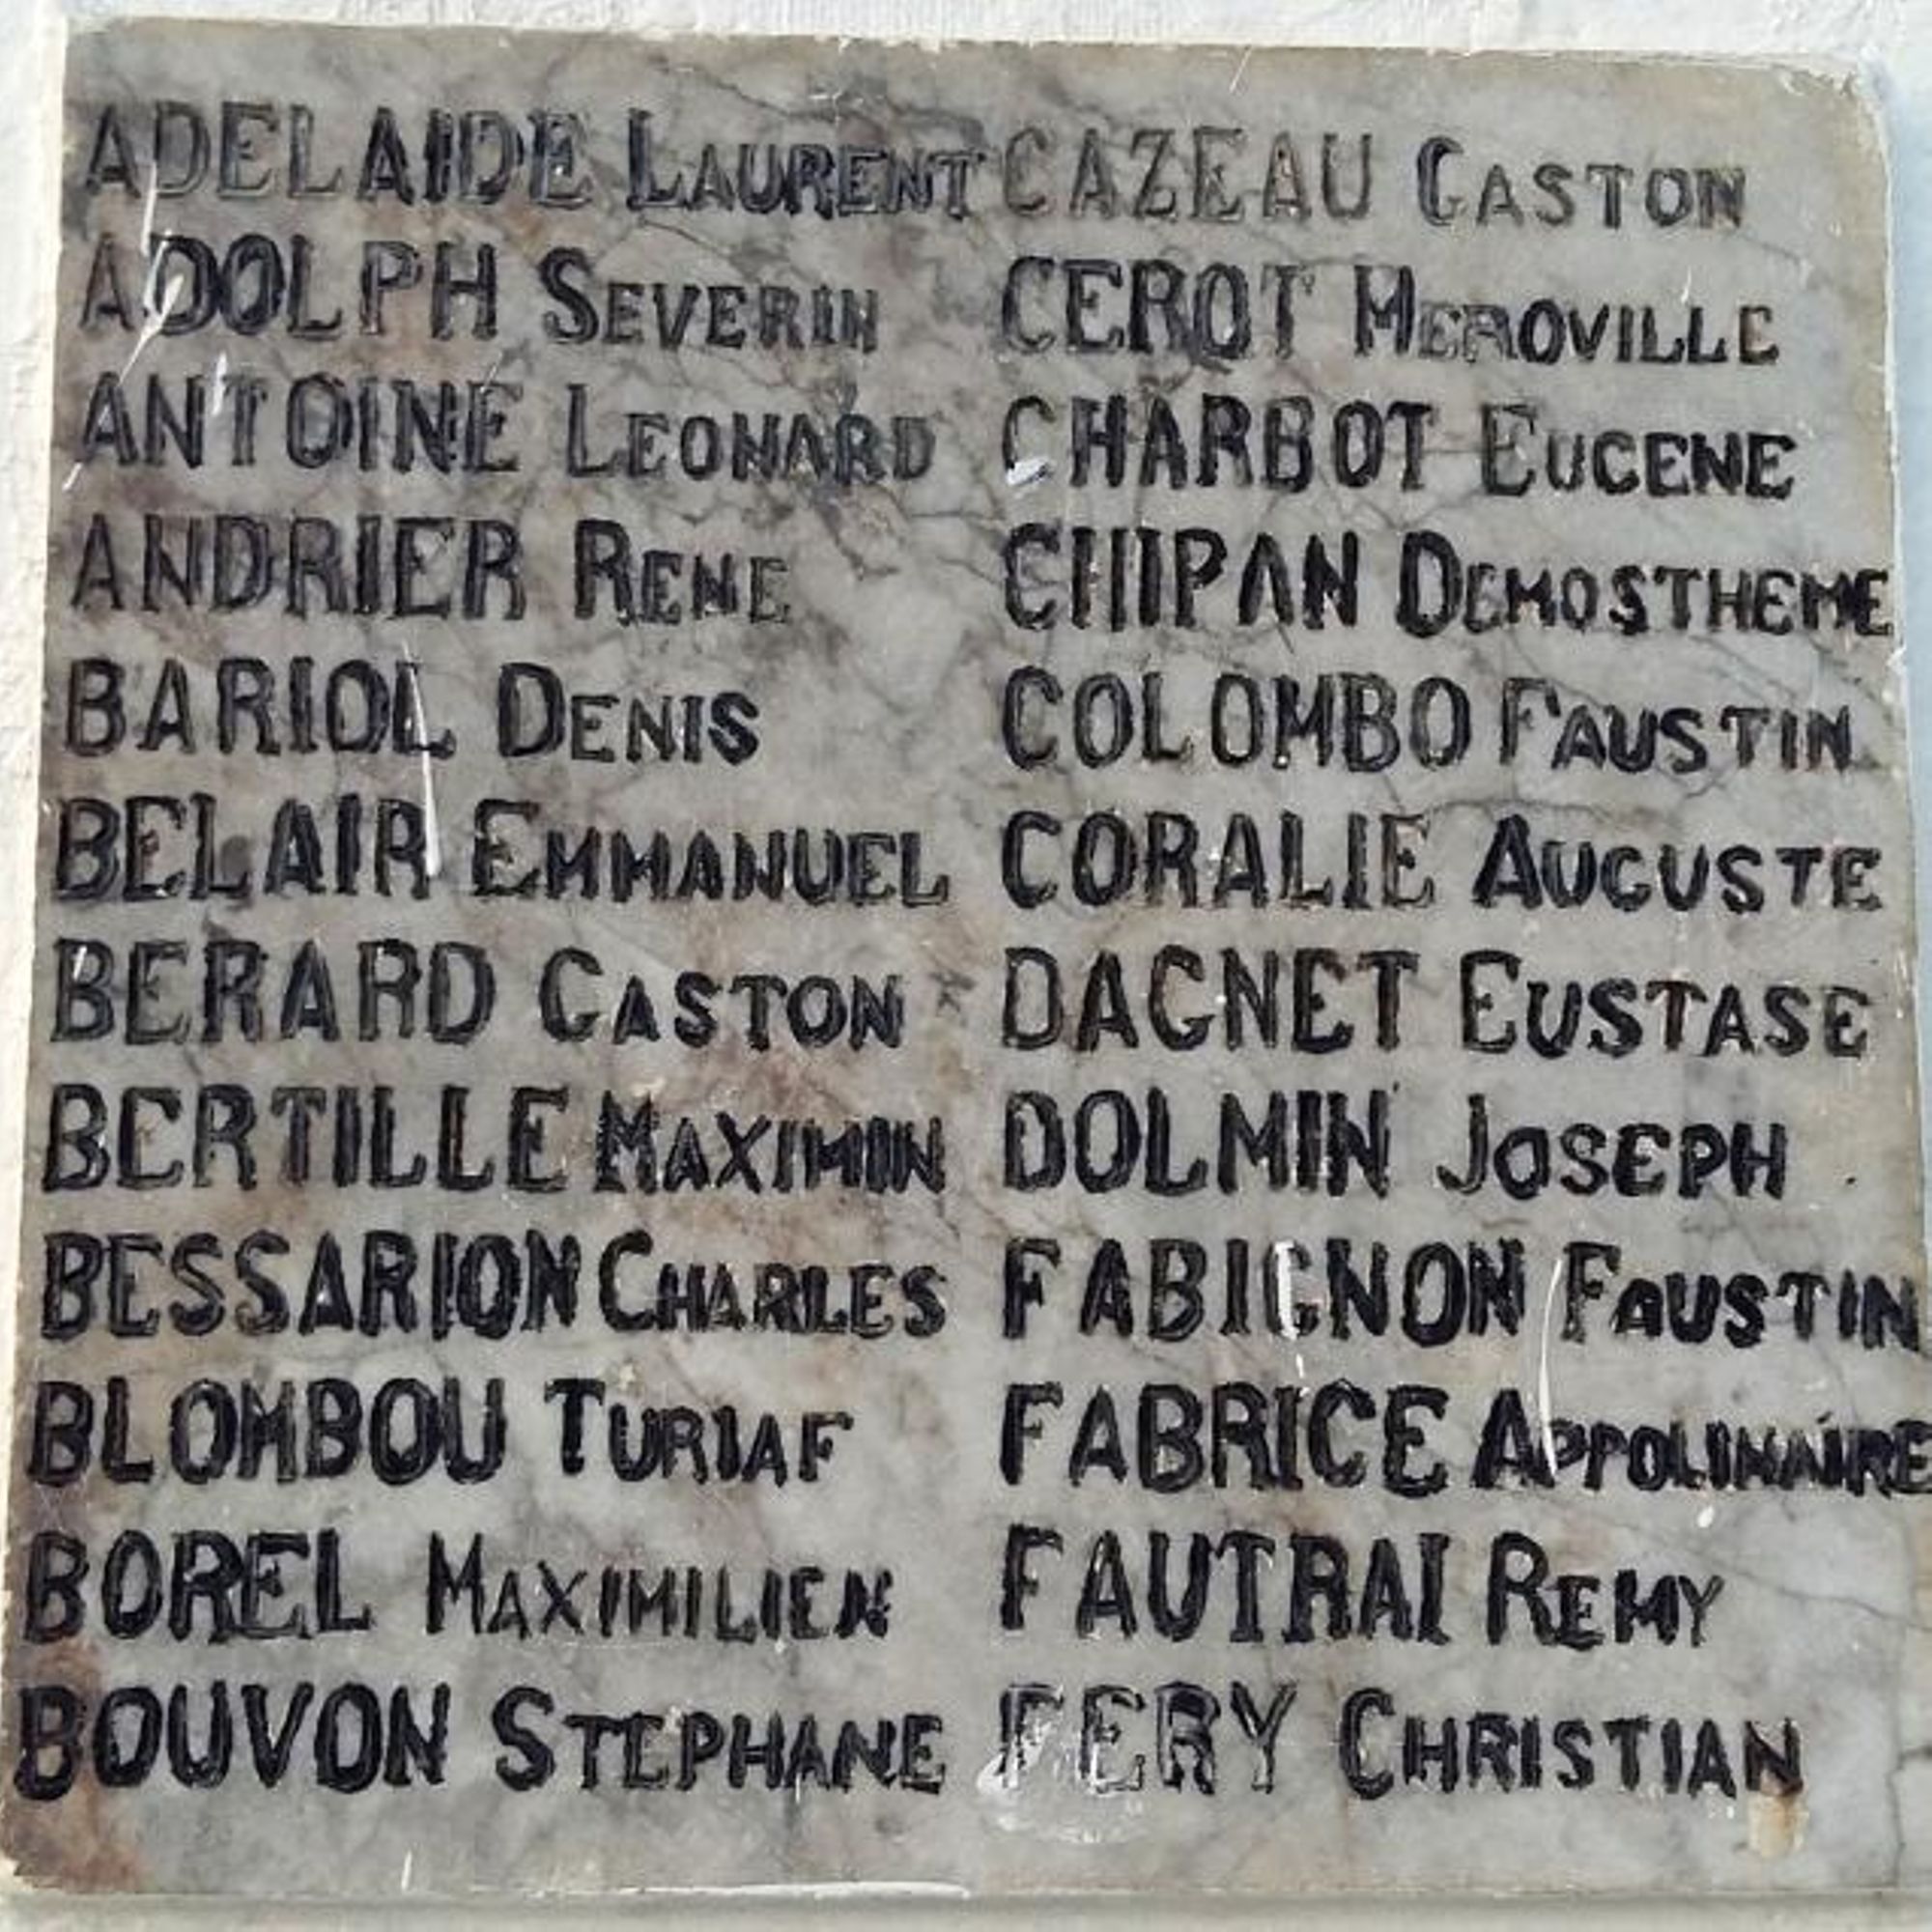 ADELAIDE LAURENT
ADOLPH SEVERIN
ANTOINE LEONARD
ANDRIER RENE
BARIOL DENIS
BELAIR EMMANUEL
BERARD GASTON
BERTILLE MAXIMIN
BESSARION CHARLES
BLOMBOU TURIAF
BOREL MAXIMILIEN
BOUVON STEPHANE
CAZEAU GASTON
CEROT MEROVILLE
CHARBOT EUGENE
CHIPAN DEMOSTHEME
COLOMBO FAUSTIN
CORALIE AUGUSTE
DAGNET EUSTASE
DOLMIN JOSEPH
FABIGNON FAUSTIN
FABRICE APPOLINAIRE
FAUTRAI REMY
FERY CHRISTIAN